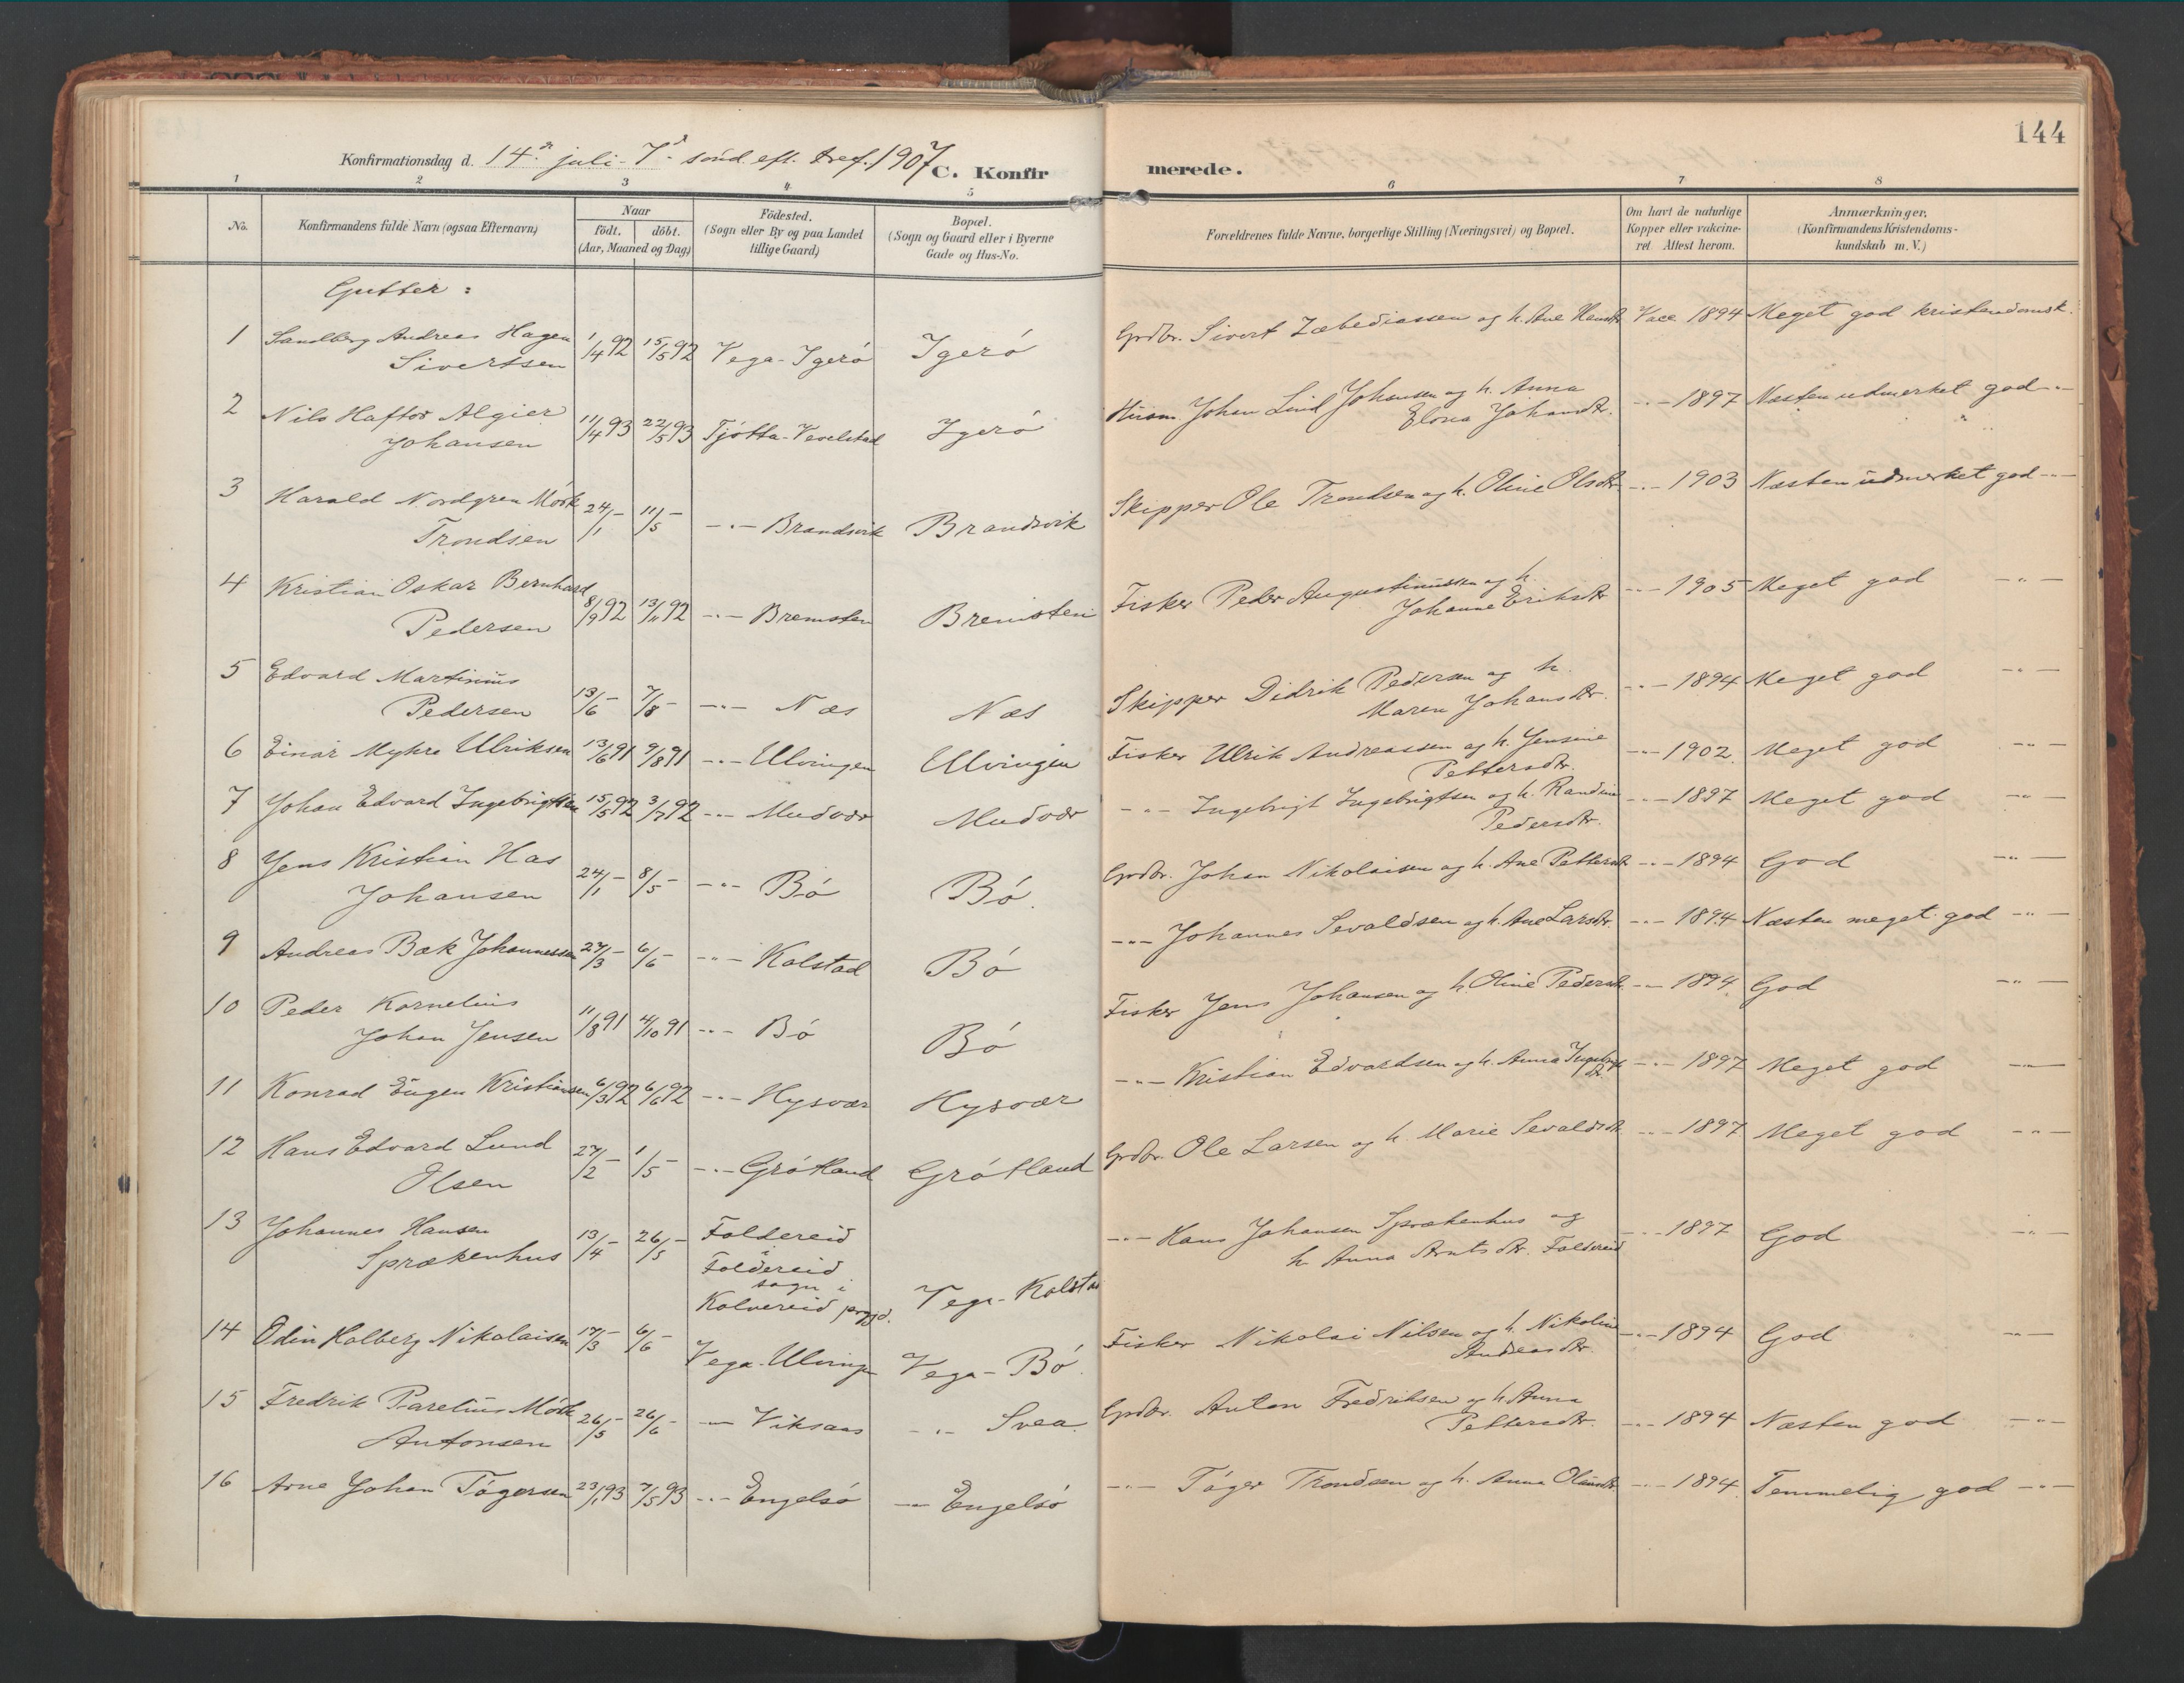 144
Konfirmationsdag d. 14de juli - 7de sønd. eft. tref. 1907
C. Konfirmerede.
1 2 3 4 5 6 7 8
No.
Konfirmandens fulde Navn (ogsaa Efternavn)
Naar
født. døbt.
(Aar, Maaned og Dag)
Födested.
(Sogn eller By og paa Landet
tillige Gaard)
Bopæl.
(Sogn og Gaard eller i Byerne
Gade og Hus-No.
Forældrenes fulde Navne, borgerlige Stilling (Næringsvei) og Bopæl.
Om havt de naturlige
Kopper eller vakcine-
ret Attest herom.
Anmærkninger.
(Konfirmandens Kristendoms-
kundskab m. V.)
Gutter:
1 Sandberg Andreas Hagen
Sivertsen 1/4 92 15/5 92 Vega - Igerö Igerö Grdbr. Sivert Zebediassen og h. Ane Hansdtr. Vacc. 1894 Meget god kristendomsk.
2 Nils Haftor Algier
Johansen 11/4 93 22/5 93 Tjötta - Vevelstad Igerö Husm. Johan Lind Johansen og h. Anna
Elona Johansdtr. -"- 1897 Næsten udmerket god -"-
3 Harald Nordgren Mörk
Trondsen 24/1 - 11/5 - -"- Brandsvik Brandsvik Skipper Ole Trondsen og h. Oline Olsdtr. -"- 1903 Næsten udmerket god -"-
4 Kristian Oskar Bernhard
Pedersen 8/9 92 13/11 92 -"- Bremsten Bremsten Fisker Peder Augustinussen og h.
Johanne Eriksdtr. -"- 1905 Meget god -"-
5 Edvard Martinius
Pedersen 13/6 - 7/8 - -"- Næs Næs Skipper Didrik Pedersen og h.
Maren Johansdtr. -"- 1894 Meget god -"-
6 Einar Myhre Ulriksen 13/6 91 9/8 91 -"- Ulvingen Ulvingen Fisker Ulrik Andreassen og h. Jensine
Pettersdtr. -"- 1902. Meget god -"-
7 Johan Edvard Ingebrigtsen 15/5 92 3/7 92 -"- Mudvær Mudvær -"- Ingebrigt Ingebrigtsen og h. Randine
Pedersdtr. -"- 1897 Meget god -"-
8 Jens Kristian Has
Johansen 24/1 - 8/5 - -"- Bö Bö. Grdbr. Johan Nikolaisen og h. Ane Pettersdtr. -"- 1894 God -"-
9 Andreas Bæk Johannessen 27/3 - 6/6 - -"- Kolstad Bö -"- Johannes Sevaldsen og h. Ane Larsdtr. -"- 1894 Næsten meget god -"-
10 Peder Kornelius
Johan Jensen 11/8 91 4/10 91 -"- Bö Bö Fisker Jens Johansen og h. Oline Pedersdtr. -"- 1894 God -"-
11 Konrad Eugen Kristiansen 6/3 92 6/6 92 -"- Hysvær Hysvær -"- Kristian Edvardsen og h. Anna Ingebrigtsdtr. -"- 1897 Meget god -"-
12 Hans Edvard Lund
Olsen 27/2 - 1/5 - -"- Grötland Grötland Grdbr. Ole Larsen og h. Marie Sevaldsdtr. -"- 1897 Meget god -"-
13 Johannes Hansen
Sprækenhus 13/4 - 26/5 - Foldereid
Foldereid
sogn i
Kolvereid prgjd. Vega - Kolstad -"- Hans Johansen Sprækenhus og
h. Anna Arntsdtr. Foldereid -"- 1897 God -"-
14 Odin Holberg Nikolaisen 17/3 - 6/6 - Vega - Ulvingen Vega - Bö. Fisker Nikolai Nilsen og h. Nikoline
Andreasdtr. -"- 1894 God -"-
15 Fredrik Parelius Mörk
Antonsen 26/5 - 26/6 - -"- Viksaas -"- Svea. Grdbr. Anton Fredriksen og h. Anna
Pettersdtr. -"- 1894 Næsten god -"-
16 Arne Johan Tögersen 23/1 93 7/5 93 -"- Engelsö -"- Engelsö -"- Töger Trondsen og h. Anna Olausdtr. -"- 1894 Temmelig god -"-